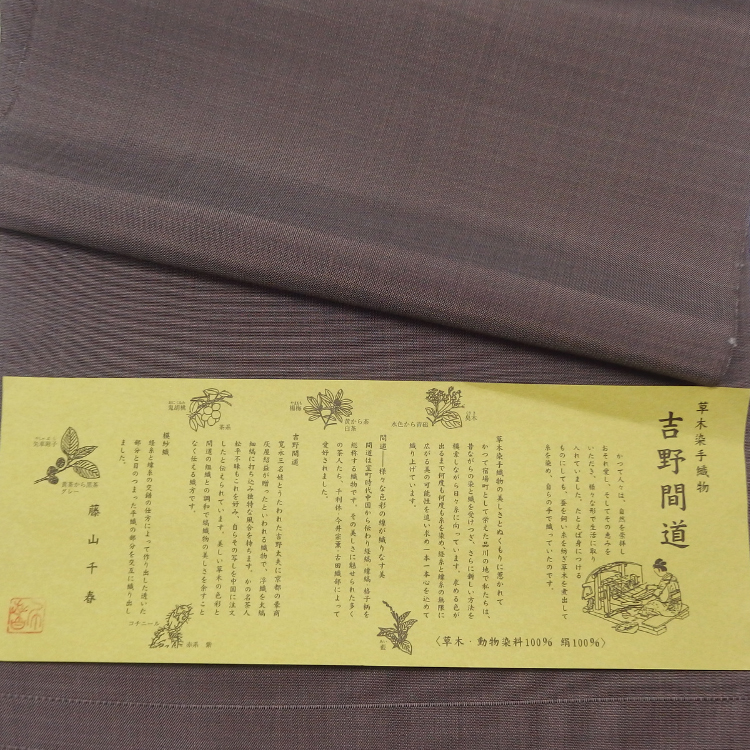 草木染手織物
吉野間道
かつて人々は、自然を崇拝し
おそれ愛し、そしてその恵みを
いただき、様々な形で生活に取り
入れていました。たとえば身につける
ものにしても、蚕を飼い糸を紡ぎ草木を煮出して
糸を染め、自らの手で織っていたのです。
草木染手織物の美しさとぬくもりに惹かれて
かつて宿場町として栄えた品川の地で私たちは、
昔ながらの染と織を受けつぎ、さらに新しい方法を
模索しながら日々糸に向っています。求める色が
出るまで何度も何度も糸を染め、経糸と緯糸の無限に
広がる美の可能性を追い求め一本一本心を込めて
織り上げています。
間道――様々な色彩の縞が織りなす美
間道は室町時代中国から伝わり経縞、緯縞、格子柄を
総称する織物です。その美しさに魅せられた多く
の茶人たち、千利休・今井宗薫・古田織部によって
愛好されました。
吉野間道
寛永三名妓とうたわれた吉野太夫に京都の豪商
灰屋紹益が贈ったといわれる織物で、浮織を太縞
細縞に打ち込み独特な風合を持ちます。かの名茶人
松平不昧もこれを好み、自らその写しを中国に注文
したと伝えられています。美しい草木の色彩と
間道の組織との調和で縞織物の美しさを余すこと
なく伝える織物です。
経糸と緯糸の交錯の仕方によって作り出した透いた
部分と目のつまった平織の部分を交互に織り出し
ました。
藤山千春
臭木
水色から青磁
楊梅
黄から茶
白茶
茶系
黒茶から黒茶
グレー
コチニール
赤系 紫
〈草木・動物染料100% 絹100%〉